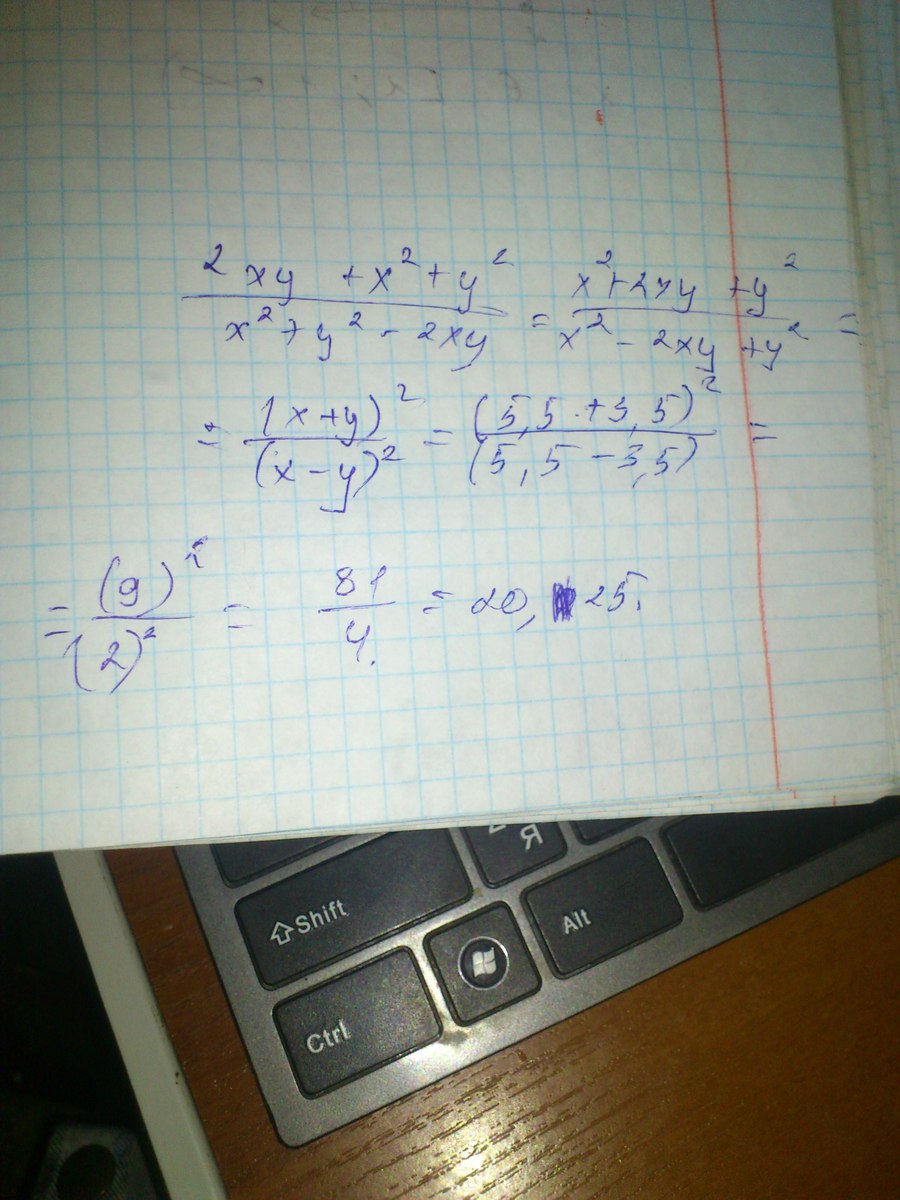 (2xy + x² + y²)/(x² + y² - 2xy) = (x² + 2xy + y²)/(x² - 2xy + y²) =
= (x + y)²/(x - y)² = (5,5 + 3,5)²/(5,5 - 3,5) =
= (9)²/(2)² = 81/4. = 20, 25.
Я
Shift
Alt
Ctrl